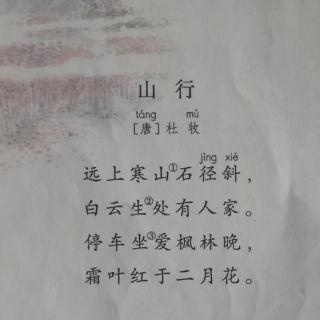 山行
táng mù
[唐]杜牧
jìng xié
远上寒山①石径斜，
白云生②处有人家。
停车坐③爱枫林晚，
霜叶红于二月花。